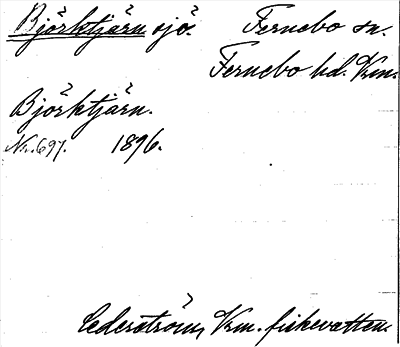 Björktjärn sjö. Fernebo sn.
Fernebo hd. Krm.
Björktjärn.
Nr. 697. 1896.
Cederström, Vrm. fiskevatten.